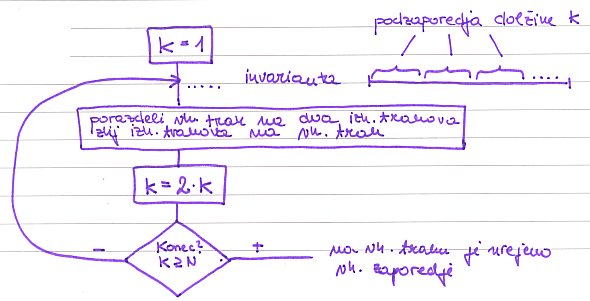 podzaporedja dolžine k
k = 1
..... invarianta
.....
porazdeli vh. trak na dva izh. trakova
zlij izh. trakova na vh. trak
k = 2 · k
Konec?
K ≥ N
-
+
na vh. traku je urejeno
vh. zaporedje